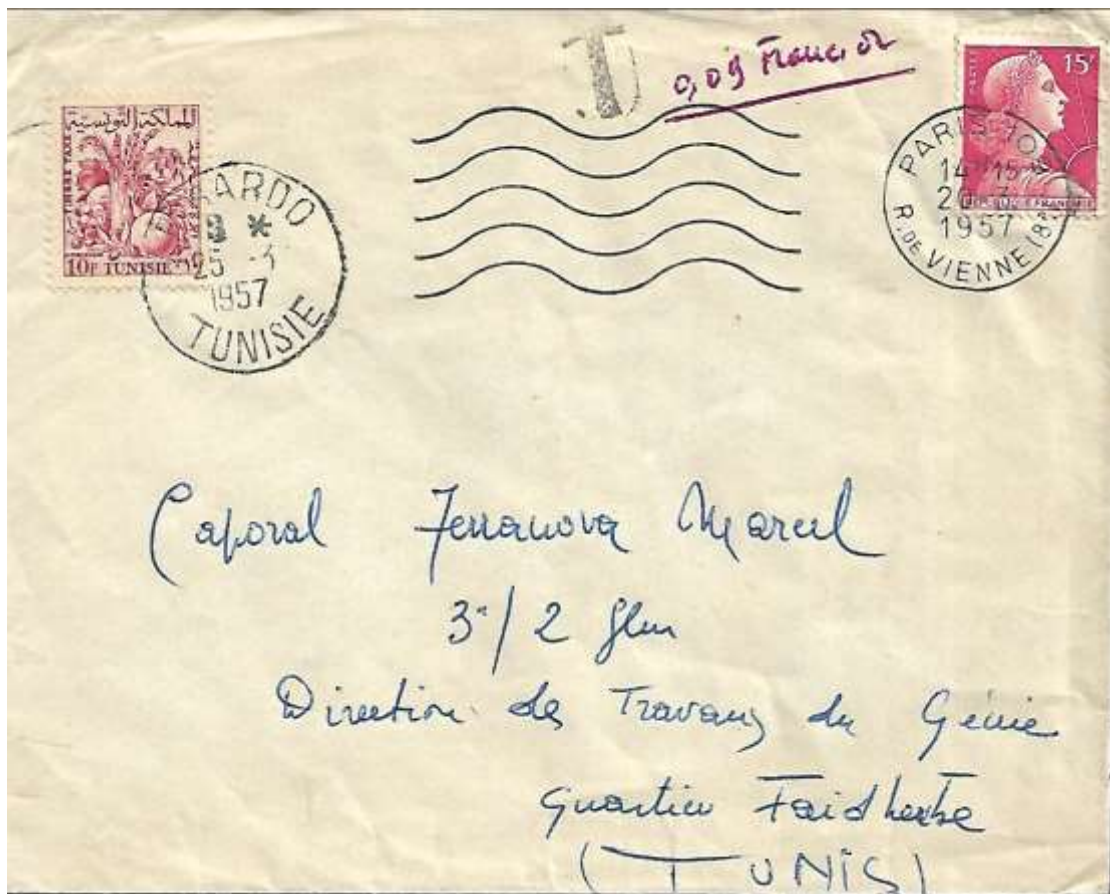 T
0,09 Franc or
15F
POSTES
REPUBLIQUE FRANÇAISE
PARIS
14H15
20-3
1957
R. DE VIENNE (8e)
المملكة التونسية
TIMBRE TAXE
10F TUNISIE
BARDO
25-3
1957
TUNISIE
Caporal Terranova Marcel
3e/2
Direction des Travaux du Génie
Quartier Faidherbe
(TUNIS)